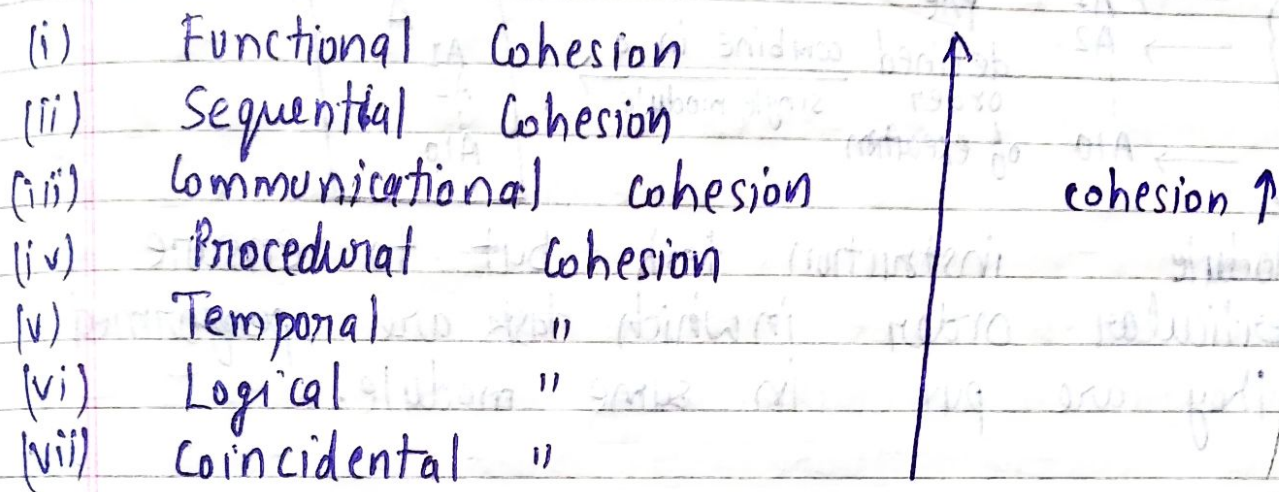 (i) Functional Cohesion
(ii) Sequential Cohesion
(iii) Communicational cohesion cohesion ↑
(iv) Procedural Cohesion
(v) Temporal "
(vi) Logical "
(vii) Coincidental "